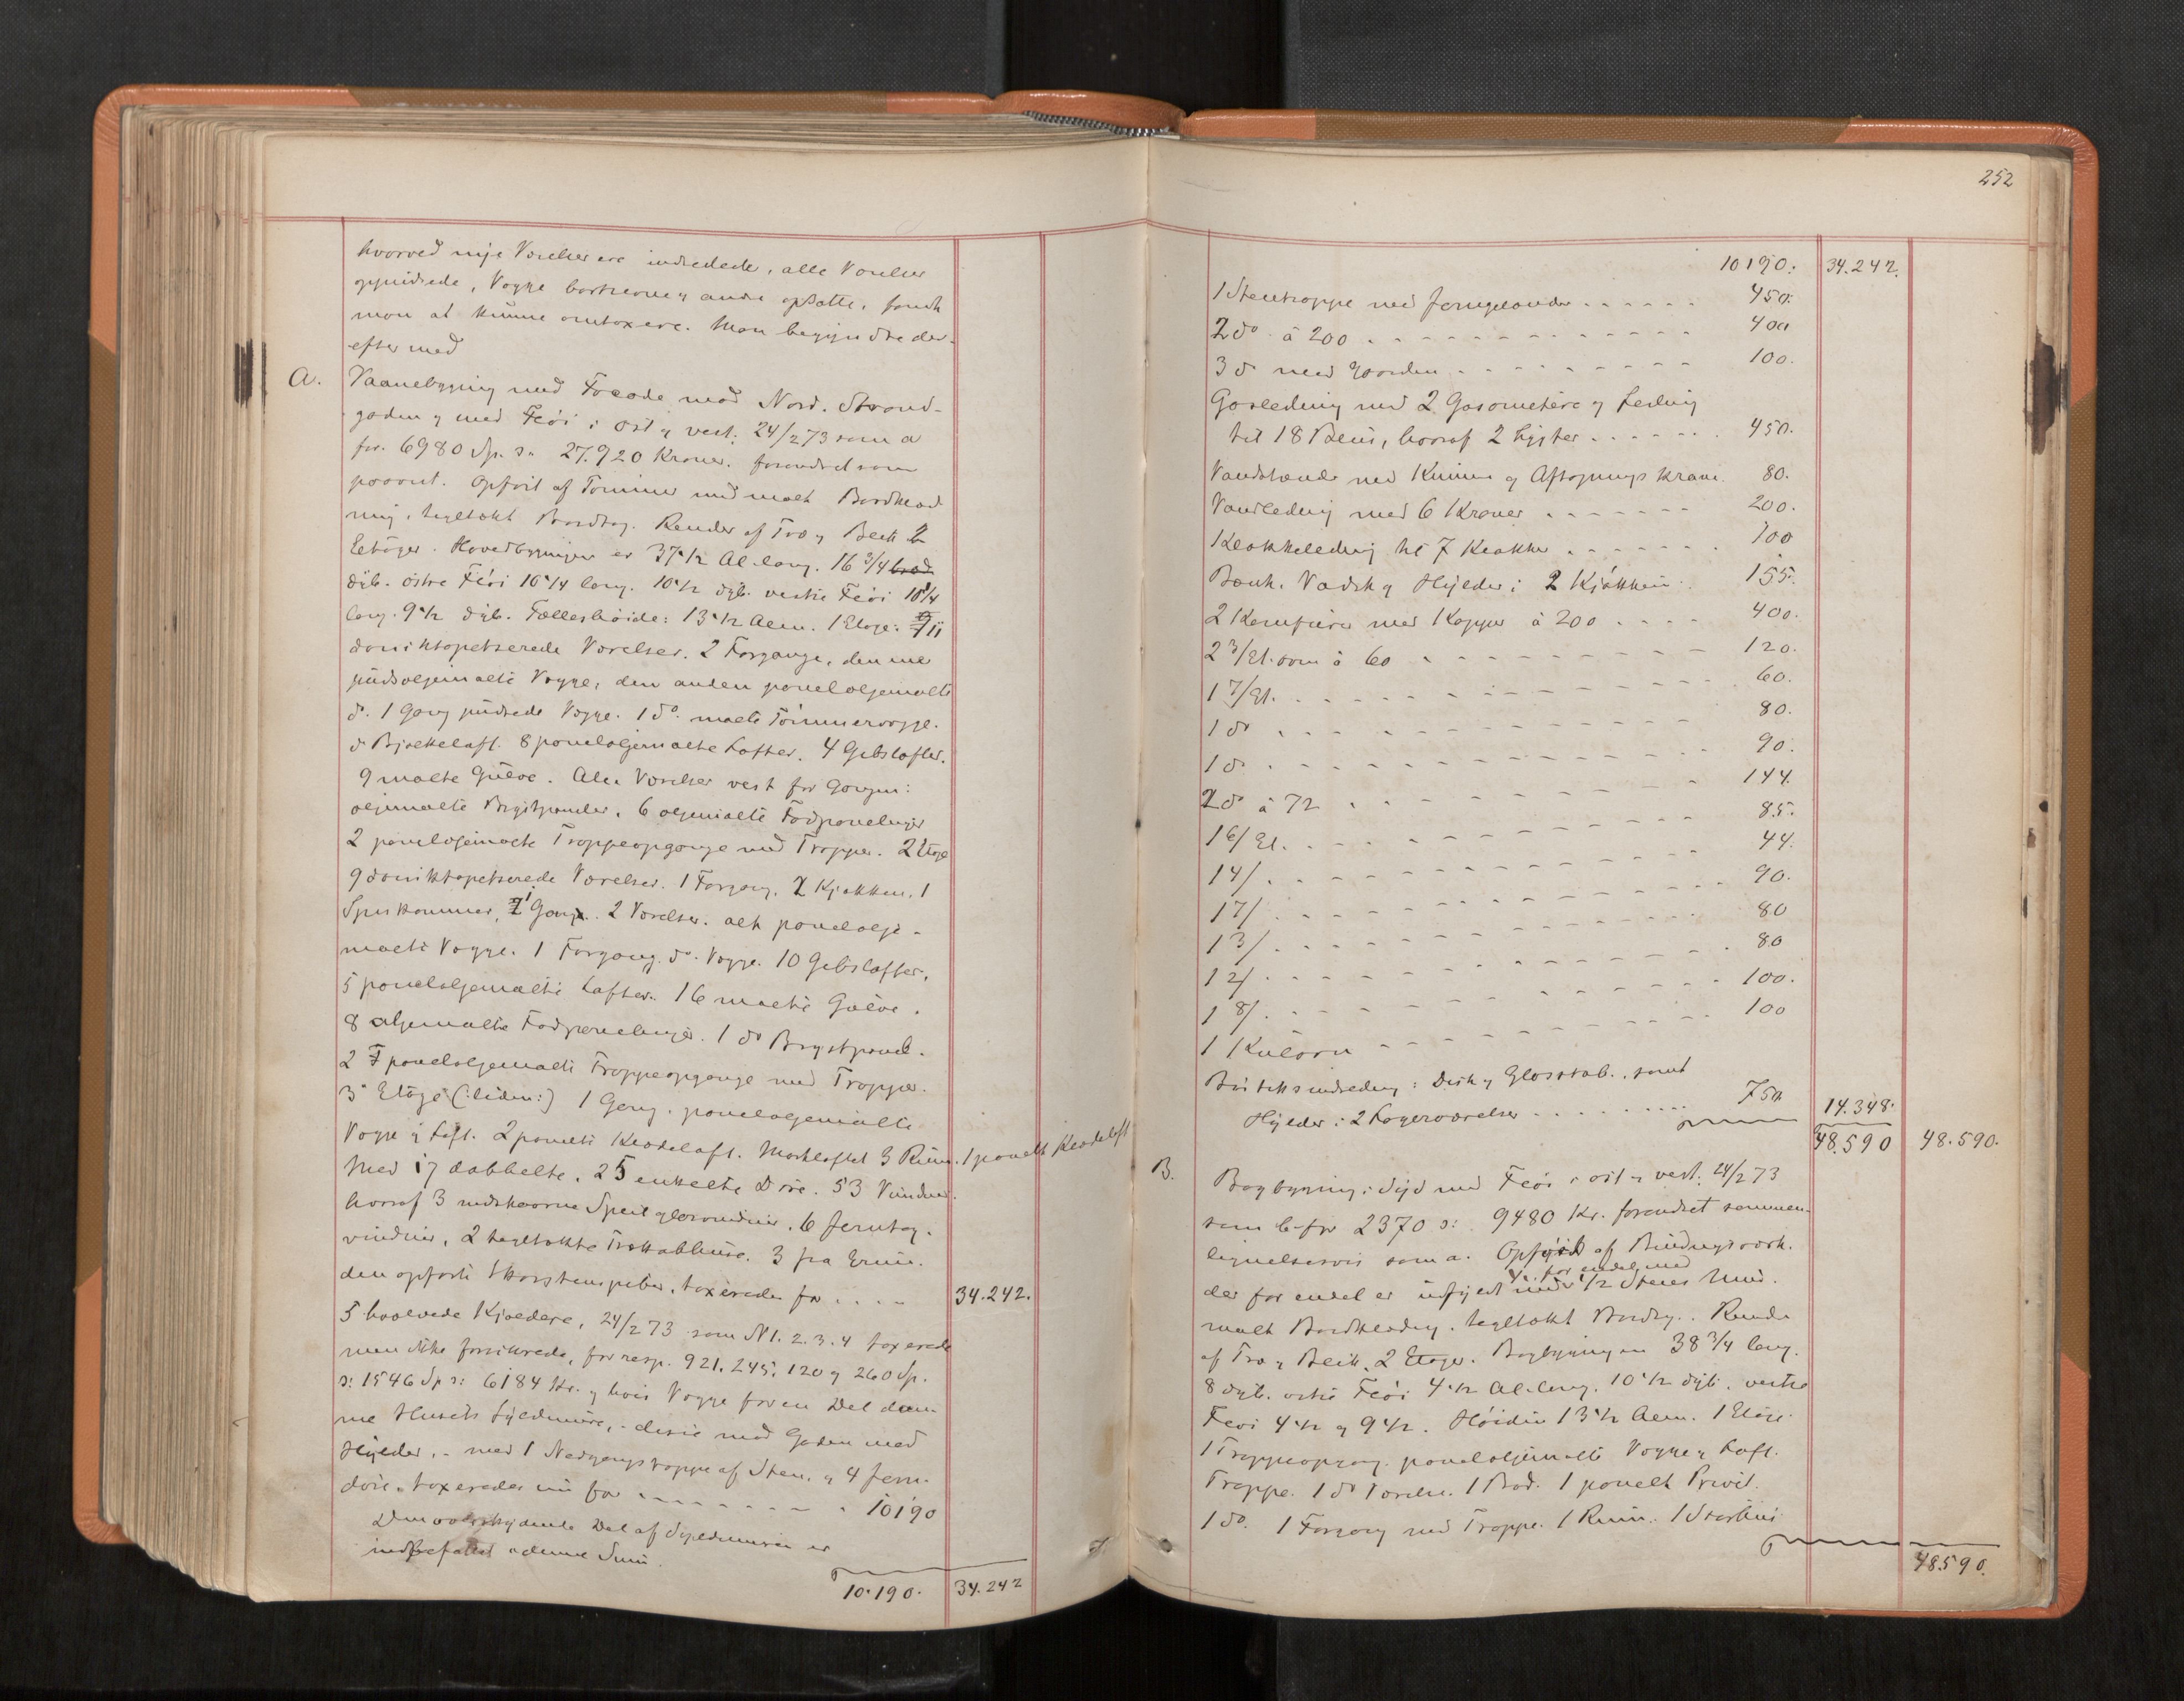 hvorved nye Værelser ere indredede, alle Værelser
oppudsede, Vægge borttagne og andre opsatte, fandt
man at kunne omtaxere. Man begyndte der-
efter med
A. Vaanebygning med Facade mod Nord. Strand-
gaden og med Fløi i öst og vest: 24/2 73 som a
for 6980 Sp. ɔ: 27.920 Kroner. forandret som
paavist. Opfört af Tømmer med malt Bordklæd
ning, tegltækt Bordtag. Render af Træ og Blik 2
Etager. Hovedbygningen er 37 1/2 Al. lang. 16 3/4
dyb. östre Fløi 10 1/4 lang. 10 1/2 dyb. vestre Fløi 10 1/4
lang. 9 1/2 dyb. Fælleshöide: 13 1/2 Alen. 1 Etage: 11
donniktapetserede Værelser. 2 Forgange, den ene
pudsoljemalte Vægge, den anden paneloljemalte
do. 1 Gang pudsede Vægge. 1 do. malte Tömmervægge.
do Bjelkeloft. 8 paneloljemalte Lofter. 4 Gibslofter.
9 malte Gulve. Alle Værelser vest for Gangen:
oljemalte Brystpaneler. 6 oljemalte Fodpanelinger
2 paneloljemalte Trappeopgange med Trapper. 2 Etage
9 donniktapetserede Værelser. 1 Forgang. 2 Kjøkken. 1
Spiskammer, 1 Gang. 2 Værelser. alt panelolje-
malte Vægge. 1 Forgang do. Vægge. 10 Gibslofter.
5 paneloljemalte Lofter. 16 malte Gulve.
8 oljemalte Fodpanelinger. 1 do Brystpanel.
2 paneloljemalte Trappeopgange med Trapper.
3e Etage (: liden :) 1 Gang. paneloljemalte
Vægge og Loft. 2 panelte Kvadeloft. Mørkloftet 3 Rum. 1 panelt Kvadeloft
Med 17 dobbelte. 25 enkelte Döre. 53 Vinduer.
hvoraf 3 udskaarne Speilglasvinduer. 6 Jerntag-
vinduer, 2 tegltækte Trækabhuse. 3 fra Grun-
den opförte Skorstenspiber, taxeredes for .... 34.242.
5 hvælvede Kjældere, 24/2 73 som N 1. 2. 3. 4 taxerede
men ikke forsikrede, for resp. 921. 245. 120 og 260 Sp.
ɔ: 1546 Sp ɔ: 6184 Kr. og hvis Vægge for en Del dan-
ne Husets Syldmure, - disse mod Gaden med
Hylder, - med 1 Nedgangstrappe af Sten og 4 Jern-
döre, taxeredes nu for - - - - - - - 10190
Den overskydende Del af Syldmuren er
indbefattet i denne Sum.
10.190. 34.242
252
10190: 34.242.
1 Stentrappe med Jerngelænder ...... 450:
2 do à 200 - - - - - - - - 400
3 do med Gaarden - - - - - - - 100.
Gasledning med 2 Gasometere og Ledning
til 18 Blus, hvoraf 2 Lygter ...... 450.
Vandstande med Kumme og Aftapnings kran. 80.
Vandledning med 6 Kraner ....... 200.
Klokkeledning til 7 Klokker ...... 100
Bænk. Vadsk og Hylder i 2 Kjökken. 155.
2 Komfurer med Kapper à 200 .... 400.
2 3/Et. ovne à 60 - - - - - - 120.
1 7/Et. - - - - - - - 60.
1 do - - - - - - - 80.
1 do - - - - - - - 90.
2 do à 72 - - - - - - - 144.
1 6/Et. - - - - - - - 85.
1 4/. - - - - - - - 44.
1 7/. - - - - - - - 90.
1 3/. - - - - - - - 80
1 2/. - - - - - - - 80
1 8/. - - - - - - - 100.
1 Kulovn - - - - - - - 100
Butiksindredning: Disk og Glasskab. samt
Hylder i 2 Lagerværelser ......... 750. 14.348.
48.590 48.590.
B. Bagbygning i Syd med Fløi i öst og vest: 24/2 73
som b for 2370 ɔ: 9480 Kr. forandret sammen-
ligningsvis som a. Opfört af Bindingsværk.
der for endel er udfyldt med 1/2 Stens Mur.
1/1. for endel med
malt Bordklædning. tegltækt Bordtag. Render
af Træ og Blik. 2 Etager. Bagbygningen 38 3/4 lang.
8 dyb. östre Fløi 4 1/2 Al. lang. 10 1/2 dyb. vestre
Fløi 4 1/2 og 9 1/2. Höiden 13 1/2 Alen. 1 Etage.
1 Trappeopgang. paneloljemalte Vægge og Loft.
Trappe. 1 do Værelse. 1 Bod. 1 panelt Privet.
1 do. 1 Forgang med Trappe. 1 Rum.
48.590.